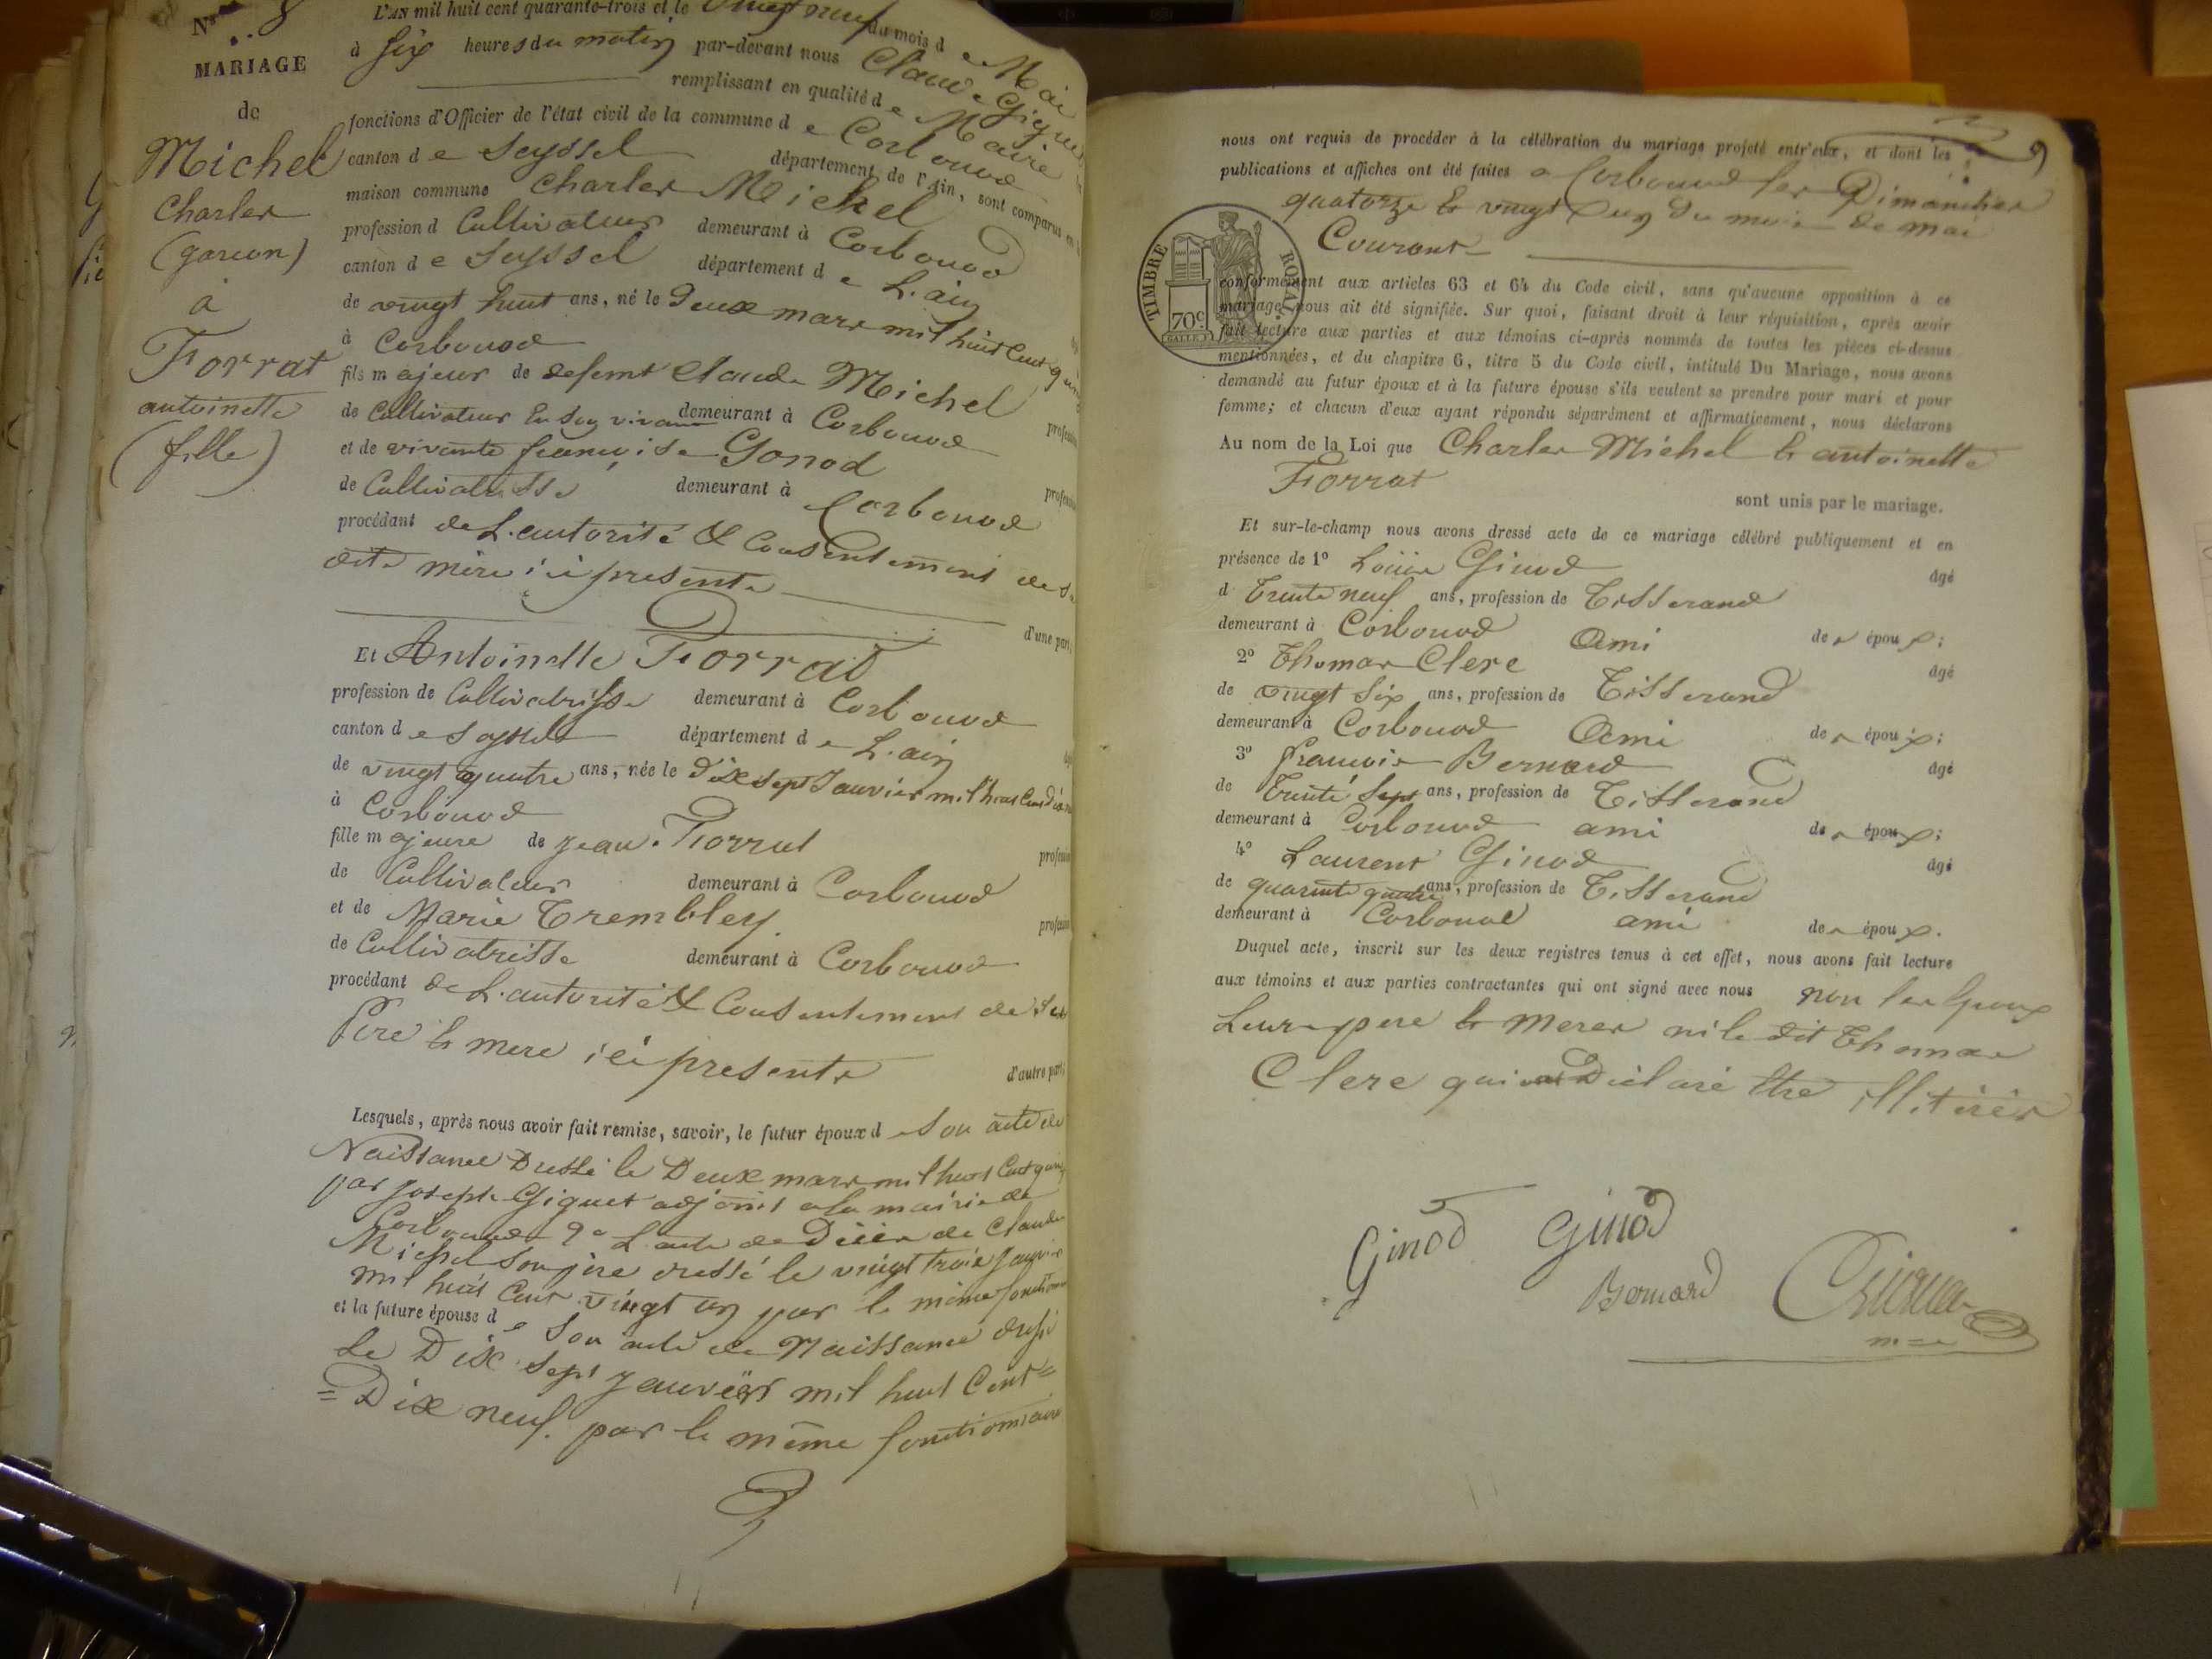 Nº 8
MARIAGE
de
Michel
Charles
(garcon)
à
Forrat
antoinette
(fille)
L'AN mil huit cent quarante-trois et le vingt neuf du mois de Mai
à six heures du matin par-devant nous Claude Giguet
remplissant en qualité de Maire
fonctions d'Officier de l'état civil de la commune de Corbonod
canton de Seyssel département de l'Ain, sont comparus en
maison commune Charles Michel
profession d Cultivateur demeurant à Corbonod
canton de Seyssel département de L'ain
de vingt huit ans, né le Deux mars mil huit Cent quinze
à Corbonod
fils majeur de defunt Claude Michel
de Cultivateur En Son vivant demeurant à Corbonod
et de vivante françoise Gonod
de Cultivatrisse demeurant à Corbonod
procédant de L'autorité & Consentement de Sa
dite mère ici présente
d'une part,
Et Antoinette Forrat
profession de Cultivatrisse demeurant à Corbonod
canton de Seyssel département de L'ain
de vingt quatre ans, née le Dix Sept Janvier mil huit Cent Dix neuf
à Corbonod
fille majeure de Jean Forrat
de Cultivateur demeurant à Corbonod
et de Marie Trembley
de Cultivatrisse demeurant à Corbonod
procédant de L'autorité & Consentement de Ses
Père & mere ici présents
d'autre part;
Lesquels, après nous avoir fait remise, savoir, le futur époux de Son acte de
Naissance Dressé le Deux mars mil huit Cent quinze
par Joseph Giguet adjoint a la mairie de
Corbonod 2º L'acte de Décès de Claude
Michel Son père dressé le vingt trois Janvier
mil huit Cent vingt un par le même fonctionnaire
et la future épouse de Son acte de Naissance dressé
Le Dix Sept Janvier mil huit Cent =
= Dix neuf. par le même fonctionnaire
nous ont requis de procéder à la célébration du mariage projeté entr'eux, et dont les
publications et affiches ont été faites a Corbonod les Dimanches
quatorze & vingt un du mois de mai
Courant
TIMBRE ROYAL
70c
conformément aux articles 63 et 64 du Code civil, sans qu'aucune opposition à ce
mariage nous ait été signifiée. Sur quoi, faisant droit à leur réquisition, après avoir
fait lecture aux parties et aux témoins ci-après nommés de toutes les pièces ci-dessus
mentionnées, et du chapitre 6, titre 5 du Code civil, intitulé Du Mariage, nous avons
demandé au futur époux et à la future épouse s'ils veulent se prendre pour mari et pour
femme; et chacun d'eux ayant répondu séparément et affirmativement, nous déclarons
Au nom de la Loi que Charles Michel & antoinette
Forrat
sont unis par le mariage.
Et sur-le-champ nous avons dressé acte de ce mariage célébré publiquement et en
présence de 1º Louis Ginod âgé
d Trente neuf ans, profession de Tisserand
demeurant à Corbonod Ami des époux;
2º Thomas Clerc âgé
de vingt Six ans, profession de Tisserand
demeurant à Corbonod Ami des époux;
3º françois Bernard âgé
de Trente Sept ans, profession de Tisserand
demeurant à Corbonod ami des époux;
4º Laurent Ginod âgé
de quarante quatre ans, profession de Tisserand
demeurant à Corbonod ami des époux.
Duquel acte, inscrit sur les deux registres tenus à cet effet, nous avons fait lecture
aux témoins et aux parties contractantes qui ont signé avec nous non les Epoux
Leurs pere & meres ni le dit Thomas
Clerc qui Déclaré Etre illitérés
Ginod Ginod
Bernard Giguet